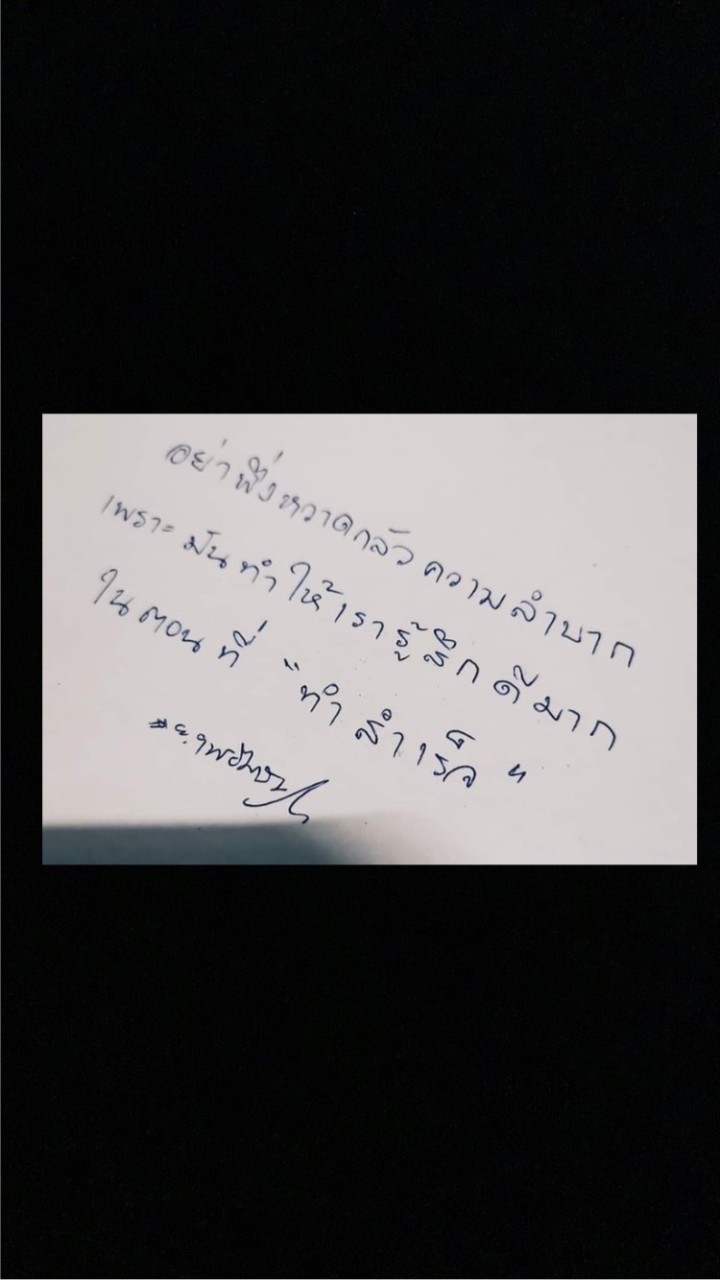 อย่าพึ่งหวาดกลัว ความลำบาก
เพราะ มันทำให้เรารู้สึก ดีมาก
ในตอนที่ "ทำสำเร็จ"